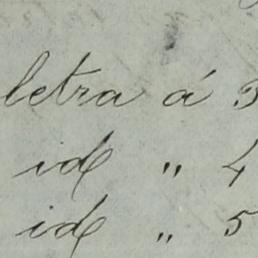 letra á 3
id " 4
id " 5